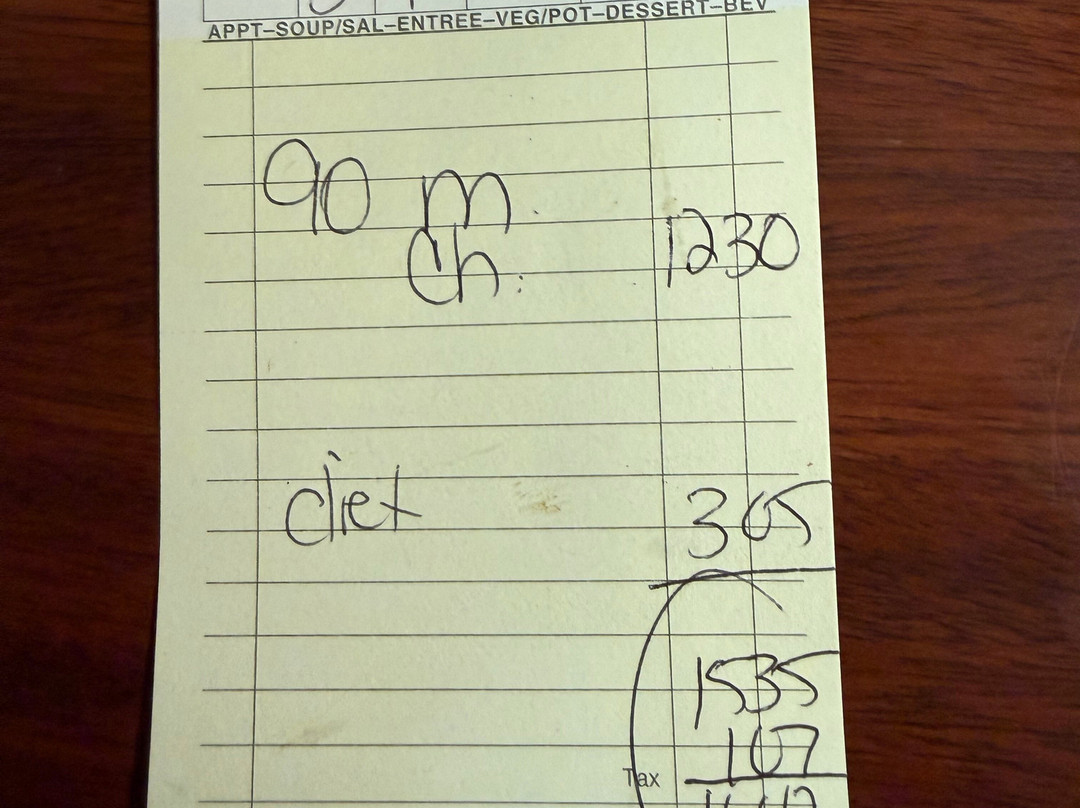 APPT–SOUP/SAL–ENTREE–VEG/POT–DESSERT–BEV
90 m
Ch. 1230
diet 305
1535
Tax 107